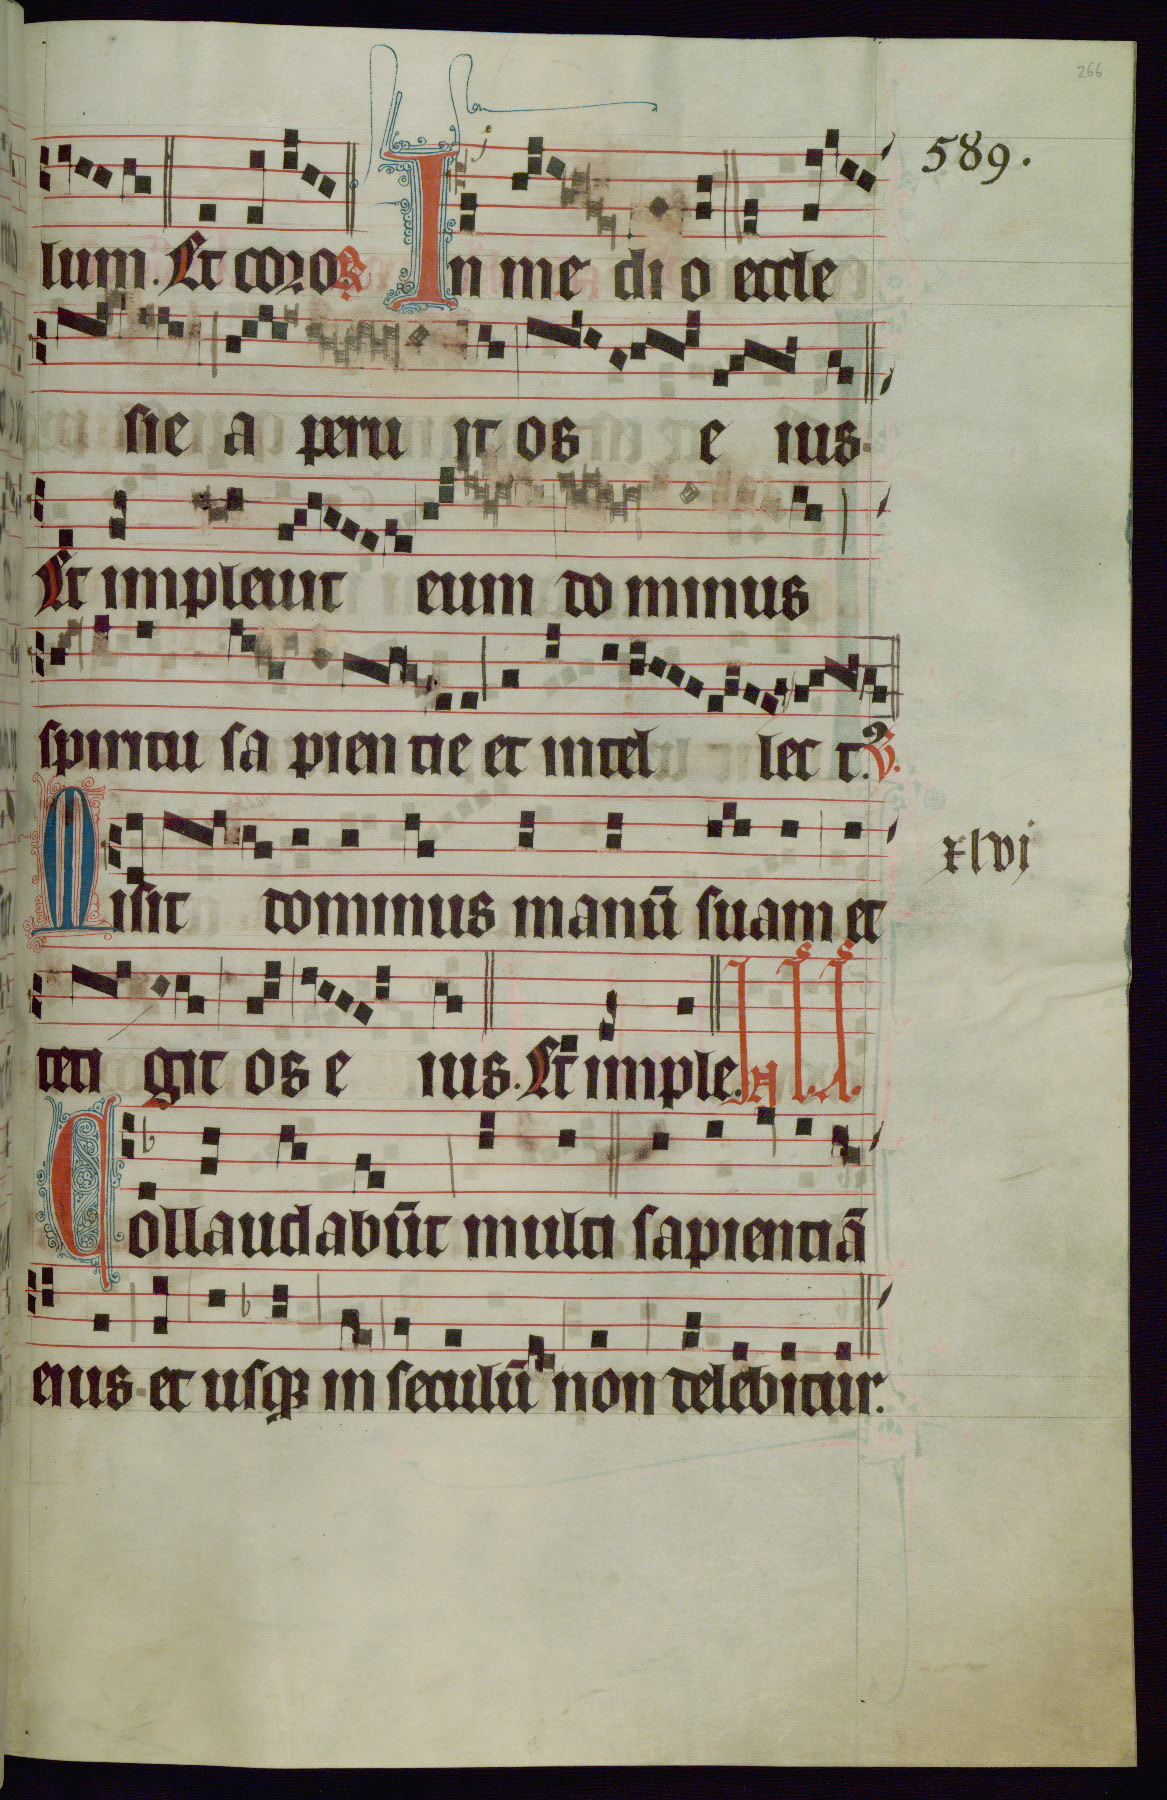 266
589.
lum. Et coro R j In me di o eccle
sie a peru it os e ius.
Et impleuit eum do minus
spiritu sa pien tie et intel lec t. V.
Misit dominus manū suam et
xlvi
teti git os e ius. Et imple.
Collaudabūt multi sapientiā
eius et usqꝫ in seculū non delebitur.